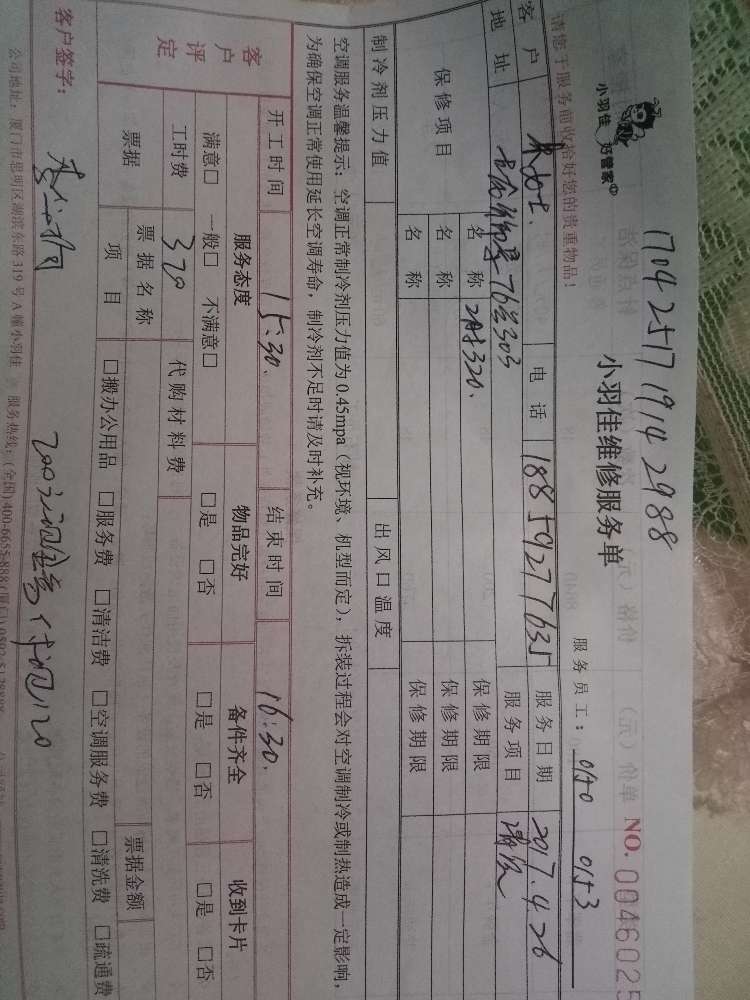 1704 2517 1914 2988
小羽佳 好管家
小羽佳维修服务单
NO. 0046025
服务员工: 0150 0153
请您于服务前收拾好您的贵重物品!
客户 电话 18859277635 服务日期 2017.4.26
地址 76号303 服务项目 清洗
保修项目 名称 保修期限
名称 保修期限
名称 保修期限
制冷剂压力值 出风口温度
空调服务温馨提示: 空调正常制冷剂压力值为0.45mpa(视环境、机型而定), 拆装过程会对空调制冷或制热造成一定影响,
为确保空调正常使用延长空调寿命, 制冷剂不足时请及时补充。
开工时间 15:30. 结束时间 16:30.
客户评定 服务态度 物品完好 备件齐全 收到卡片
满意□ 一般□ 不满意□ □是 □否 □是 □否 □是 □否
工时费 370 代购材料费
票据 票据名称 票据金额
项目 □搬办公用品 □服务费 □清洁费 □空调服务费 □清洗费 □疏通费
客户签字:
公司地址: 厦门市思明区湖滨东路319号A幢小羽佳 服务热线: (全国)400-6655-888